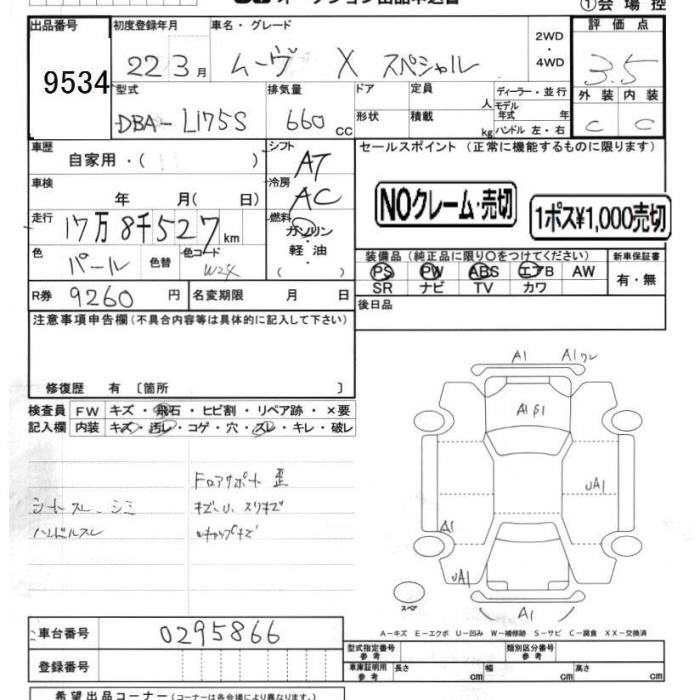 オークション出品申込書
①会場控
出品番号 初度登録年月 車名・グレード 2WD・4WD 評価点
9534 22 3月 ムーヴ X スペシャル 3.5
型式 排気量 ドア 定員 人 ディーラー・並行 外装 内装
モデル年式 年
DBA-L175S 660cc 形状 積載 kg ハンドル 左・右 C C
車歴 自家用・( ) シフト AT セールスポイント (正常に機能するものに限ります)
車検 年 月( 日) 冷房 AC
NOクレーム・売切 1ポス¥1,000売切
走行 17万8千527km 燃料 ガソリン・軽油・( )
色 パール 色替 色コード W24
装備品(純正品に限り○をつけてください) 新車保証書
PS PW ABS エアB AW 有・無
SR ナビ TV カワ
R券 9260円 名変期限 月 日 後日品
注意事項申告欄(不具合内容等は具体的に記入して下さい)
修復歴 有 〔箇所 〕
検査員記入欄 FW キズ・飛石・ヒビ割・リペア跡・×要
内装 キズ・汚レ・コゲ・穴・スレ・キレ・破レ
Fロアサポート 歪
シートスレ・シミ キズ・U・スリキズ
ハンドルスレ
A1 A1ワレ
A1 β1
UA1
A1
UA1
A1
スペア
A-キズ E-エクボ U-凹み W-補修跡 S-サビ C-腐食 XX-交換済
車台番号 0295866
登録番号
型式指定番号 参考 類別区分番号 参考
車庫証明用 参考 長さ cm 幅 cm 高さ cm
希望出品コーナー(コーナーは各会場で異なります)